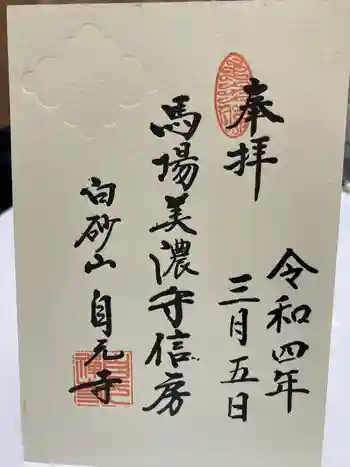 奉拝
令和四年
三月五日
馬場美濃守信房
白砂山自元寺